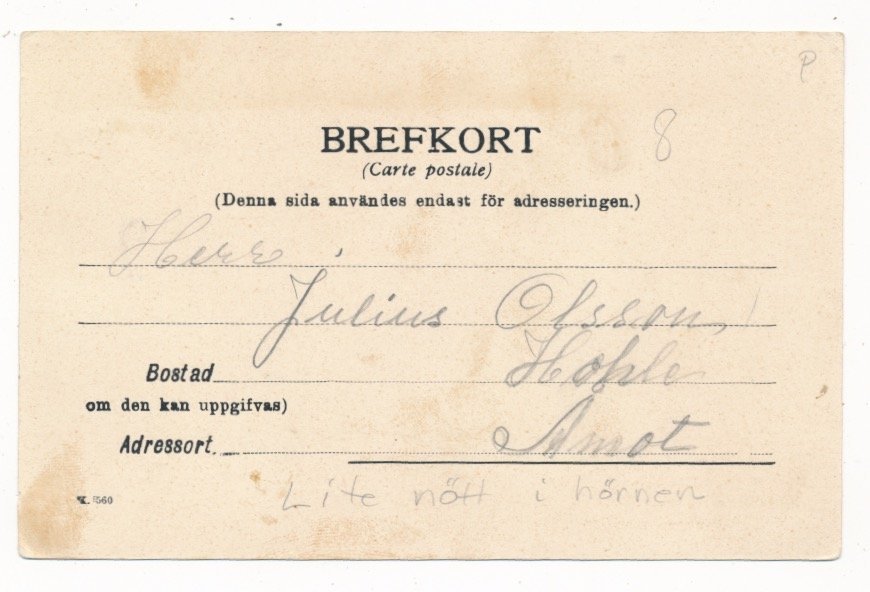 P
8
BREFKORT
(Carte postale)
(Denna sida användes endast för adresseringen.)
Herr
Julius Olsson
Bostad
om den kan uppgifvas)
Adressort. Åmot
Lite nött i hörnen
560